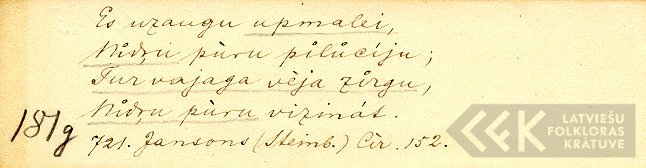 Es uzaugu upmalei,
Nůdŗu pùru pi̊lůciju;
Tur vajaga vèja zi̊rgu,
Nůdŗu pùru vizinát.
181g
721. Jansons (Steinb.) Cir. 152.
LATVIEŠU
FOLKLORAS
KRĀTUVE